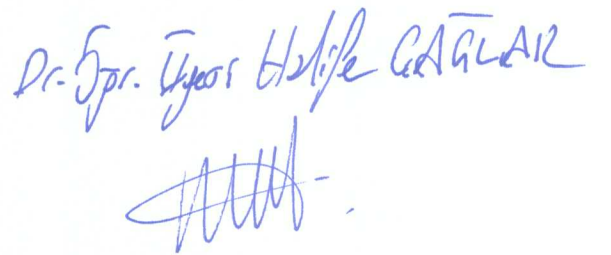 Dr. Öğr. Üyesi Halife ÇAĞLAR